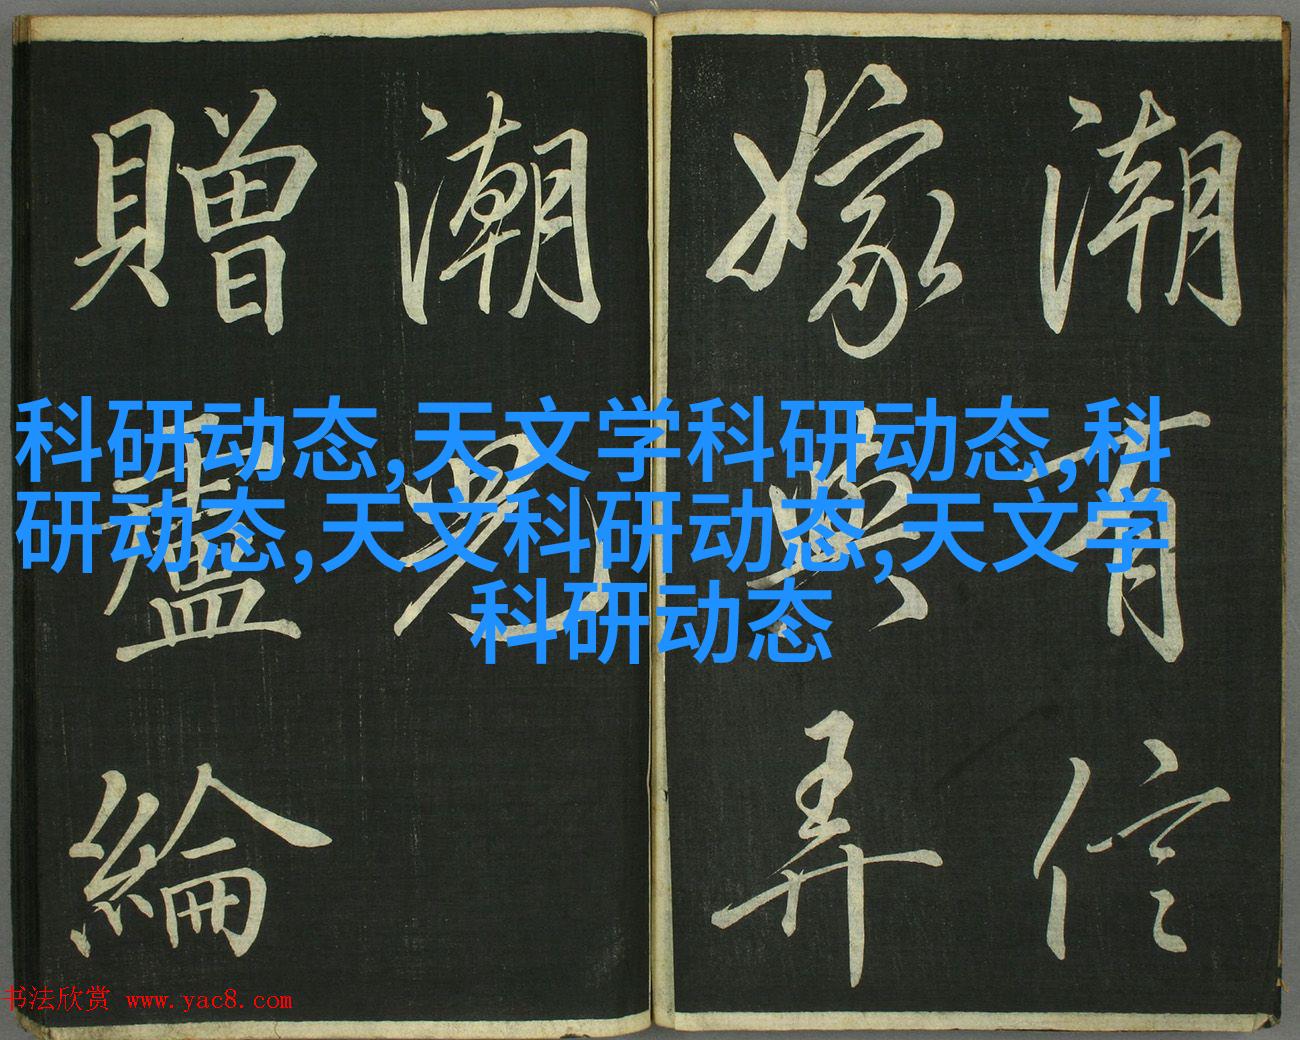 潮有信
嫁與弄
潮兒
贈盧綸
科研动态,天文学科研动态,科
研动态,天文科研动态,天文学
科研动态
书法欣赏 www.yac8.com